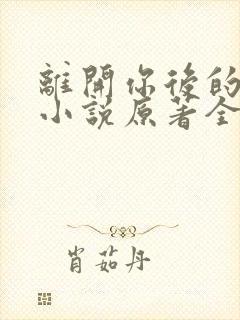 離開你後的
小說原著全
肖茹丹